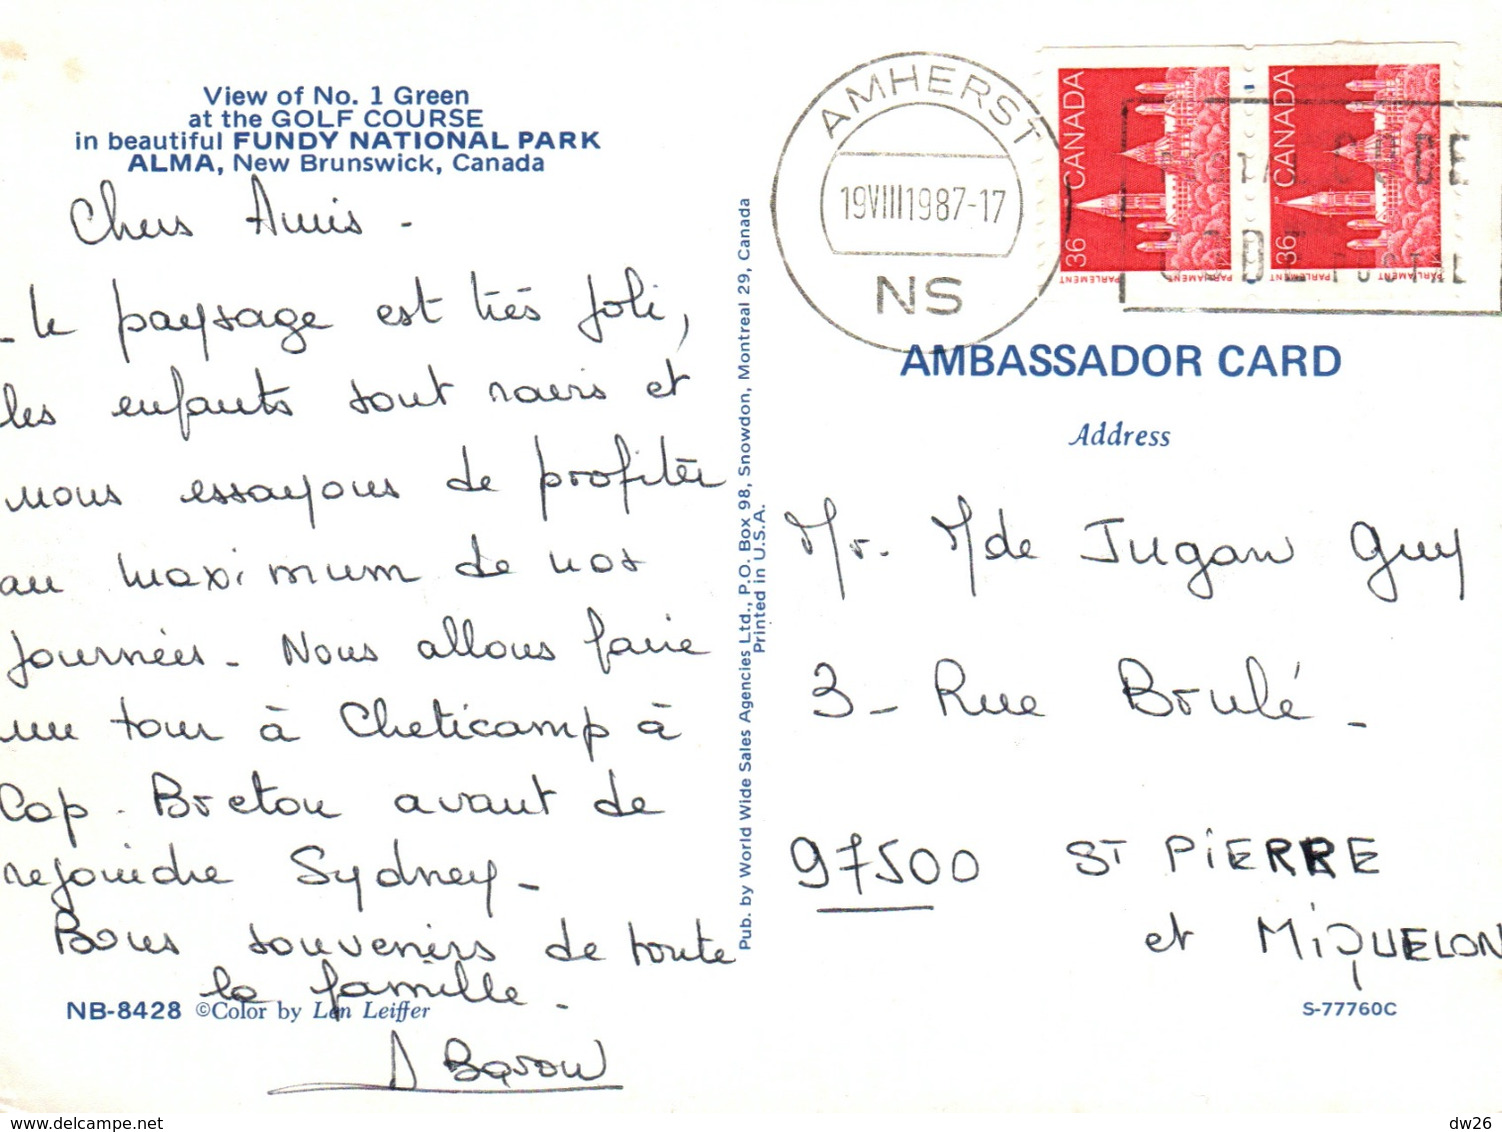 View of No. 1 Green
at the GOLF COURSE
in beautiful FUNDY NATIONAL PARK
ALMA, New Brunswick, Canada
Chers Amis -
- Le paysage est très joli,
les enfants sont ravis et
nous essayons de profiter
au maximum de nos
journées - Nous allons faire
un tour à Cheticamp à
Cap - Breton avant de
rejoindre Sydney -
Bons souvenirs de toute
la famille -
Baron
NB-8428 ©Color by Len Leiffer
Pub. by World Wide Sales Agencies Ltd., P.O. Box 98, Snowdon, Montreal 29, Canada
Printed in U.S.A.
AMHERST
19VIII1987-17
NS
CANADA
36
PARLIAMENT
PARLEMENT
CANADA
36
PARLIAMENT
PARLEMENT
AMBASSADOR CARD
Address
Mr. Mde Jugan Guy
3 - Rue Boulé -
97500 ST PIERRE
et MIQUELON
S-77760C
www.delcampe.net
dw26